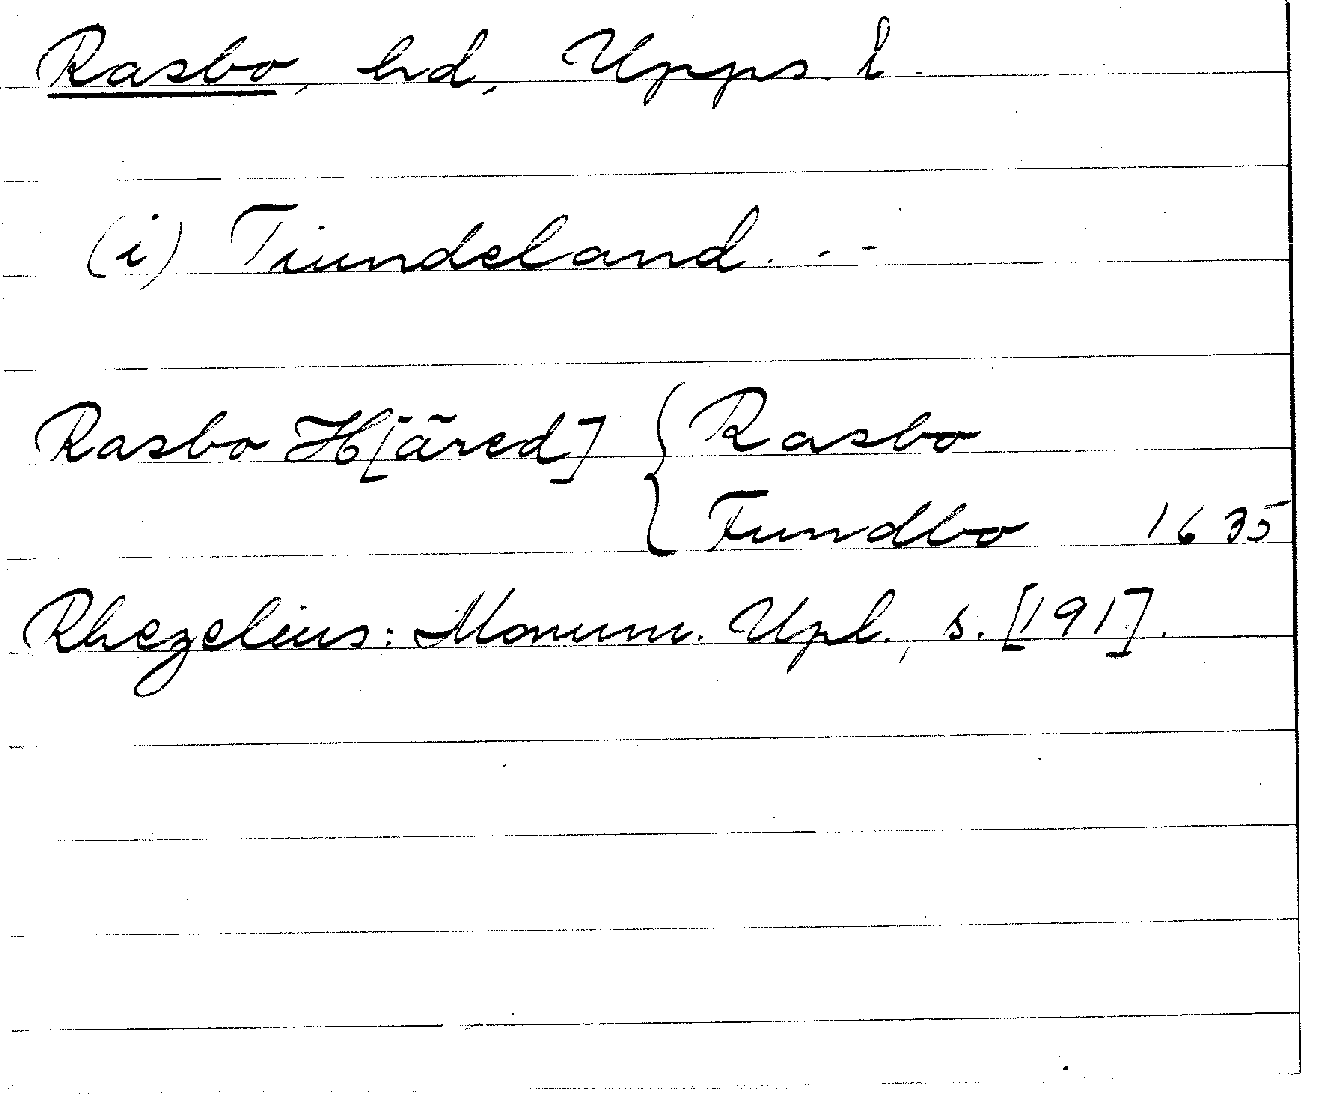 Rasbo, hd, Upps. l.
(i) Tiundeland. - -
Rasbo H[äred] { Rasbo
Fundbo 1635
Rhezelius: Monum. Upl., s. [191].